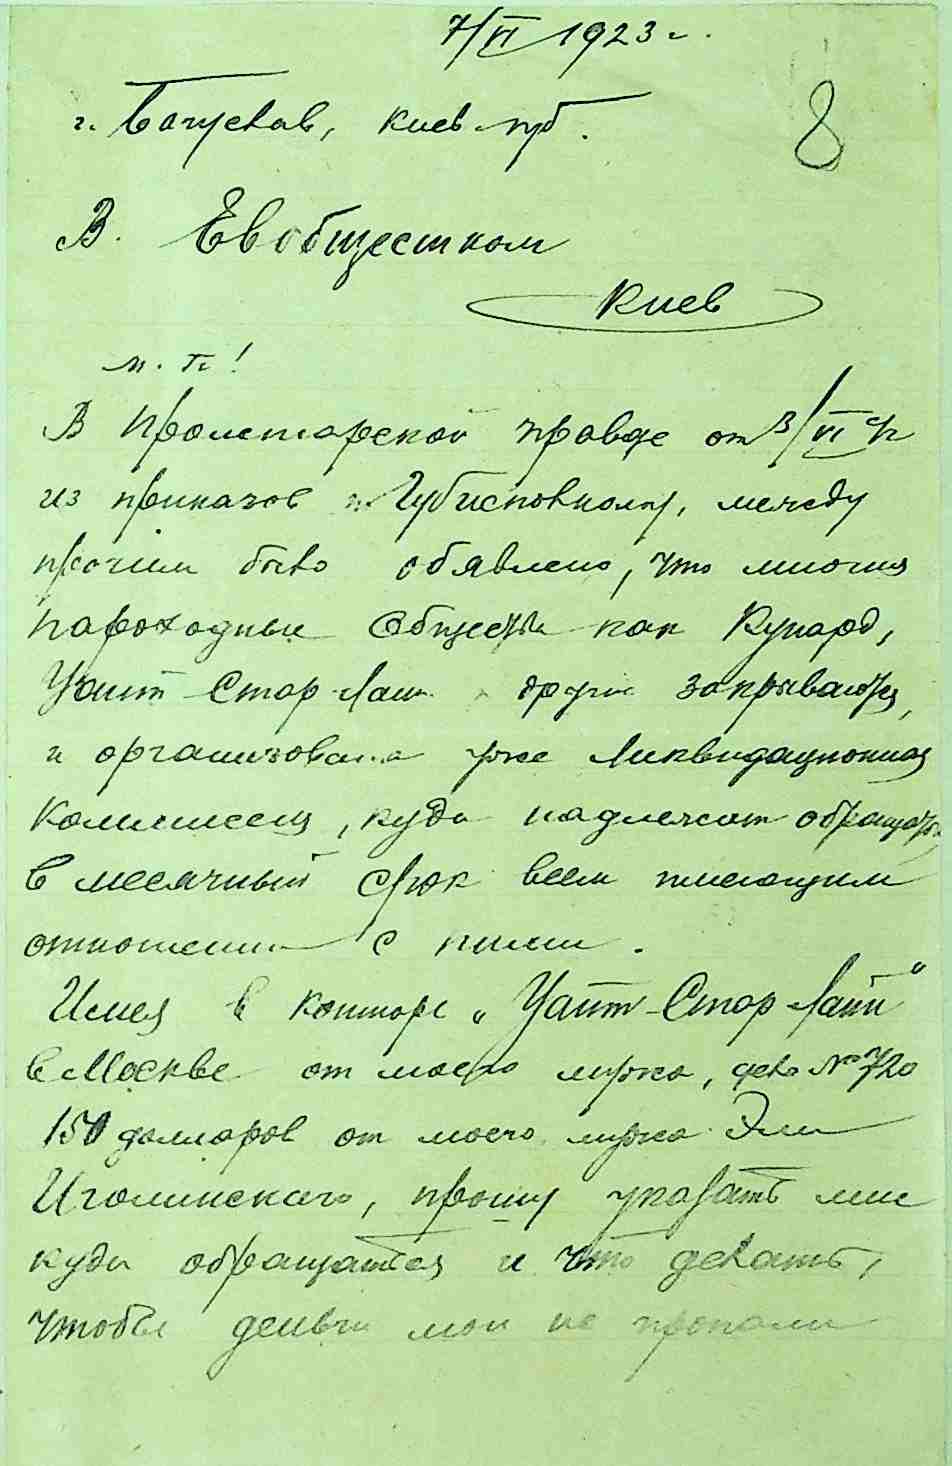 7/VI 1923 г.
8
г. Богуслав, Киев. губ.
В. Евобщестком
Киев
м. г.!
В Пролетарской правде от 3/VI
из приказов Губисполкому, между
прочим было обявлено, что многия
пароходные общества как Кунард,
Уайт-Стар-Лайн и другие закрываются,
и организована уже Ликвидационная
Коммиссия, куда надлежит обращаться
в месячный срок всем имеющим
отношения с ними.
Имея в конторе „Уайт-Стар Лайн"
в Москве от моего мужа, дело № 720
150 долларов от моего мужа Эли
Иголинского, прошу указать мне
куда обращаться и что делать,
чтобы деньги мои не пропали